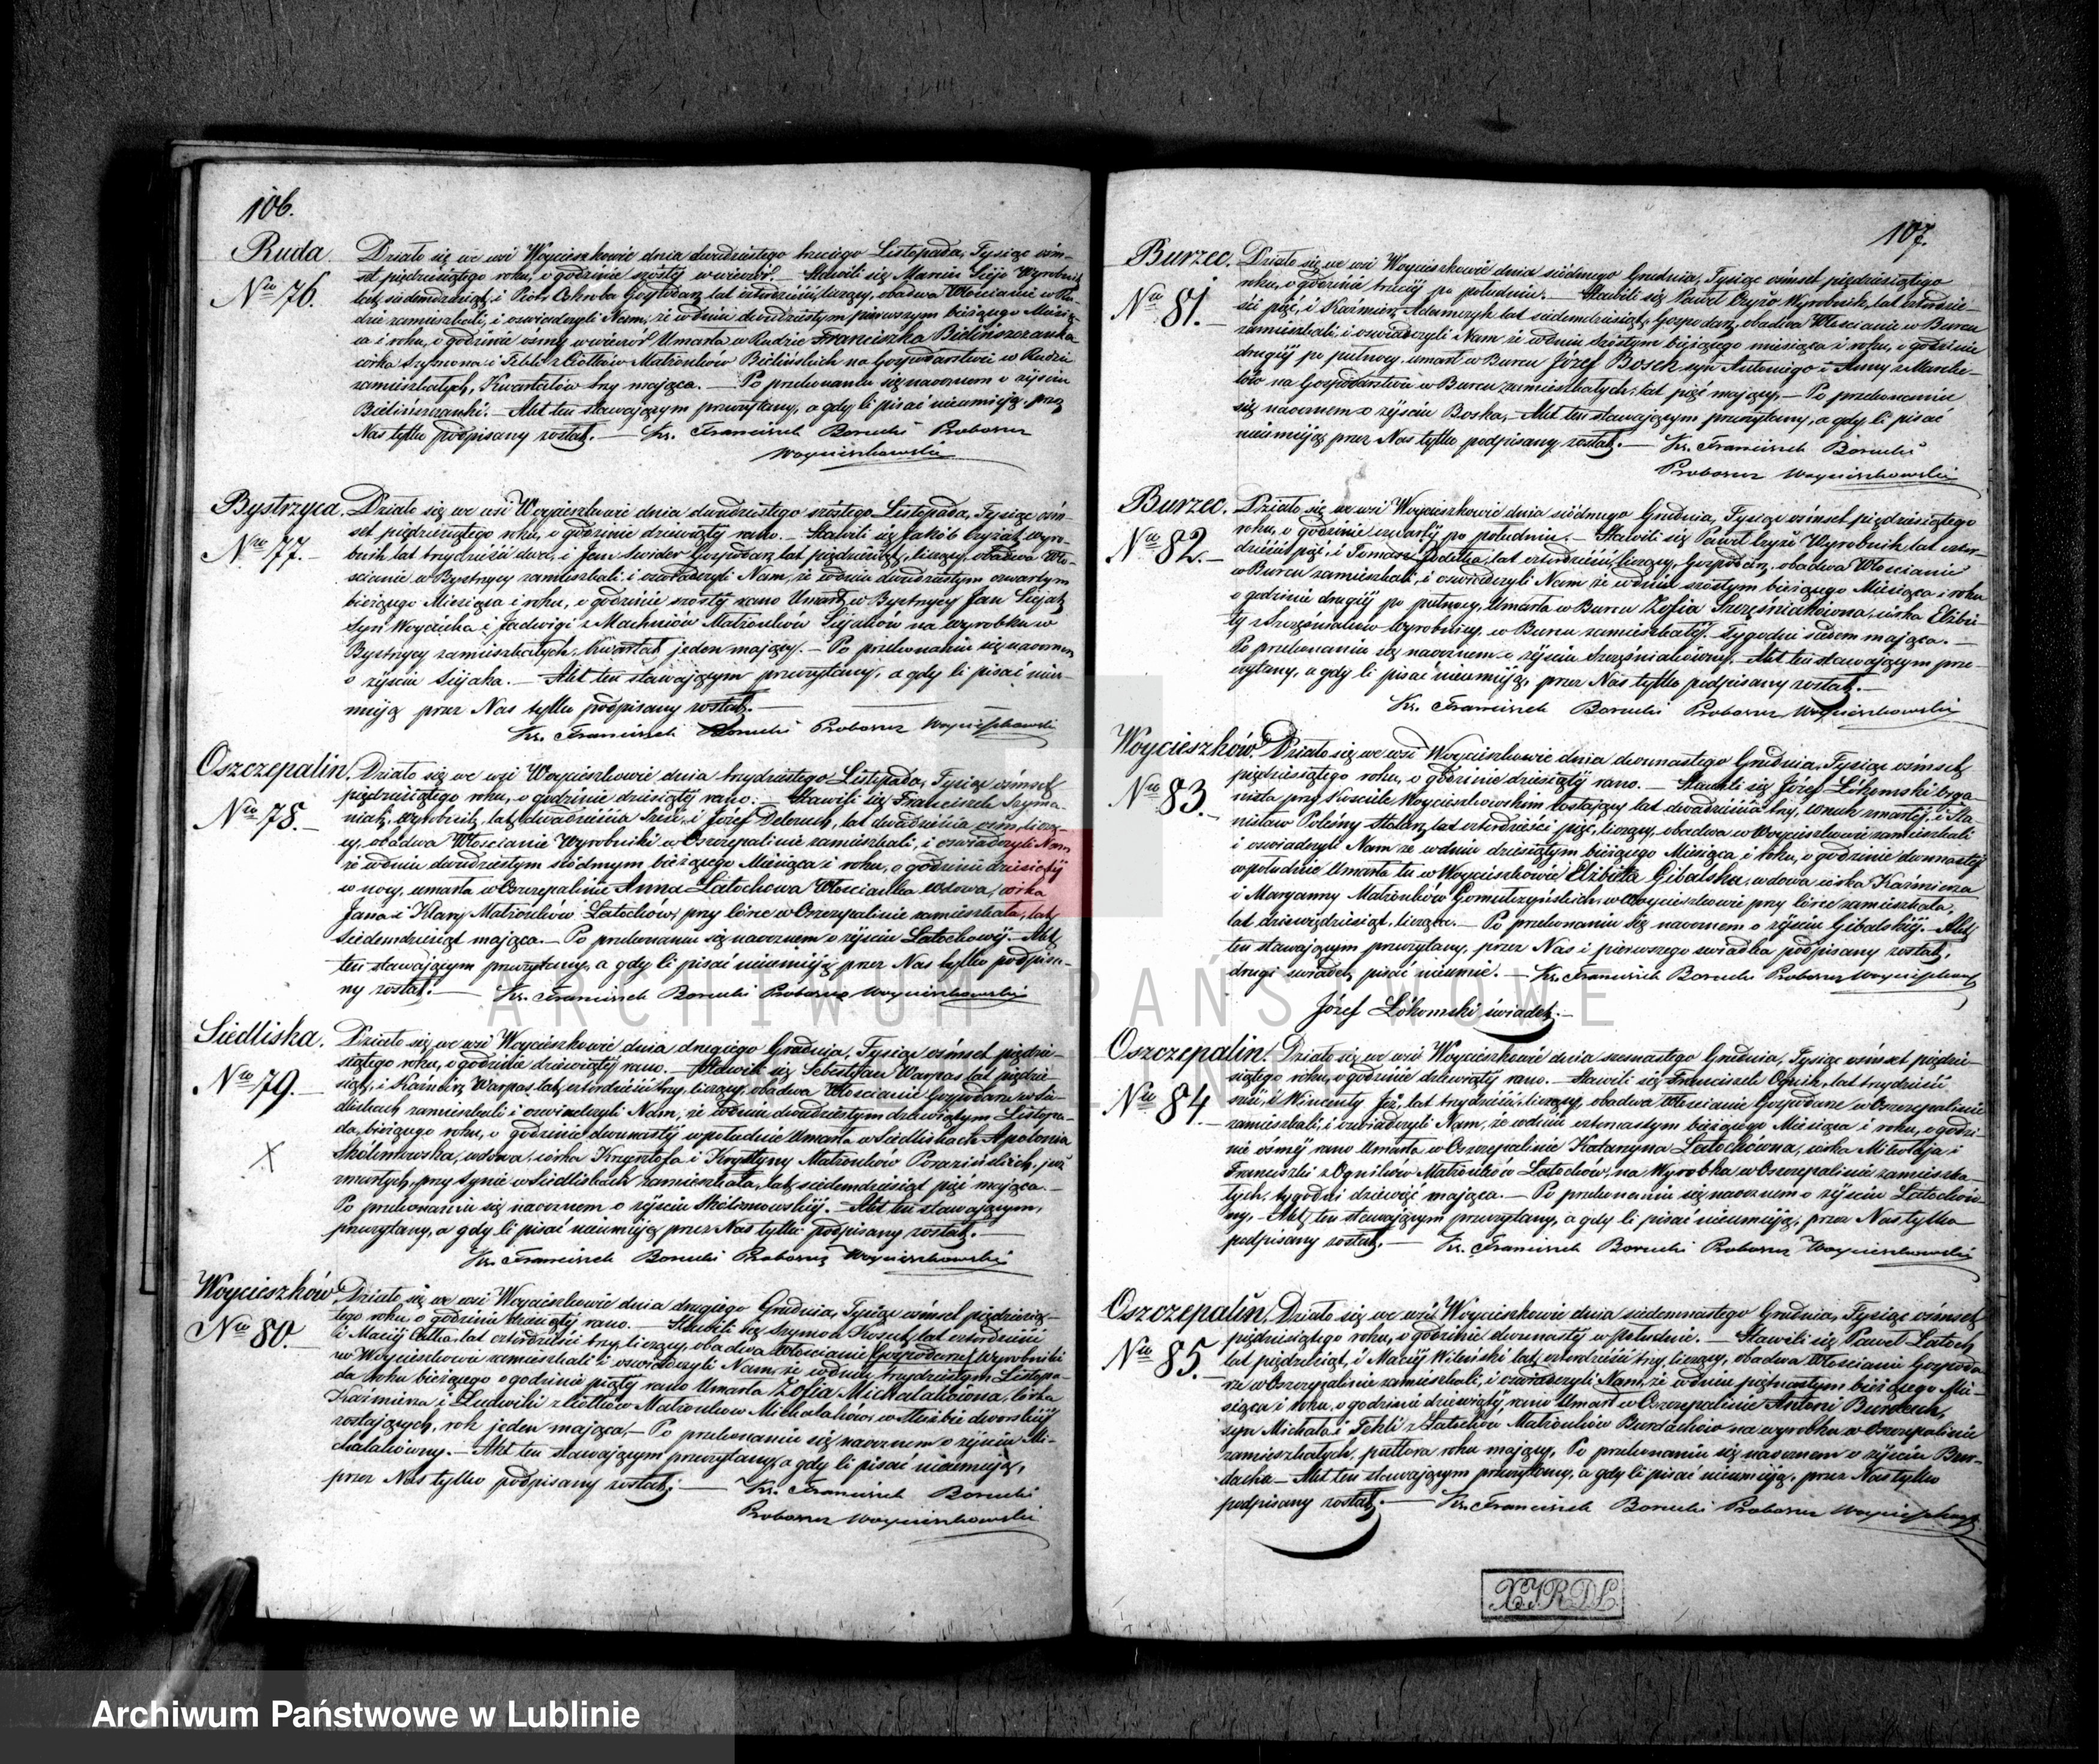 106.
Ruda
Nro 76.
Działo się we wsi Woycieszkowie dnia dwudziestego trzeciego Listopada, Tysiąc ośm-
set pięćdziesiątego roku, o godzinie szóstey wieczór. — Stawili się Marcin Wyrobnik
lat siedemdziesiąt, i Piotr Gospodarz lat czterdzieści liczący, obadwa Włościanie w Ru-
dzie zamieszkali, i oświadczyli Nam, że w dniu dwudziestym pierwszym bieżącego Miesią-
ca i roku, o godzinie ósmey wieczór Umarła w Rudzie Franciszka Bielińszczanka
córka Szymona i Tekli z Ciołków Małżonków Bielińskich na Gospodarstwie w Rudzie
zamieszkałych, Kwartałów trzy mająca. — Po przekonaniu się naocznem o zejściu
Bielińszczanki. — Akt ten stawającym przeczytany, a gdy ci pisać nieumieją, przez
Nas tylko podpisany został. — Ks. Franciszek Borucki Proboszcz
Woycieszkowski
Bystrzyca.
Nro 77.
Działo się we wsi Woycieszkowie dnia dwudziestego szóstego Listopada, Tysiąc ośm-
set pięćdziesiątego roku, o godzinie dziewiątey rano. — Stawili się Jakób Czyżak wyro-
bnik lat trzydzieści dwa, i Jan Świder Gospodarz lat pięćdziesiąt, liczący, obadwa Wło-
ścianie w Bystrzycy zamieszkali i oświadczyli Nam, że w dniu dwudziestym czwartym
bieżącego Miesiąca i roku, o godzinie szóstey rano Umarł w Bystrzycy Jan Siejak
Syn Woyciecha i Jadwigi z Machniów Małżonków Siejaków na wyrobku w
Bystrzycy zamieszkałych, Kwartał jeden mający. — Po przekonaniu się naocznem
o zejściu Siejaka. — Akt ten stawającym przeczytany, a gdy ci pisać nieu-
mieją przez Nas tylko podpisany został. —
Ks. Franciszek Borucki Proboszcz Woycieszkowski
Oszczepalin.
Nro 78.
Działo się we wsi Woycieszkowie dnia trzydziestego Listopada, Tysiąc ośmset
pięćdziesiątego roku, o godzinie dziesiątey rano. — Stawili się Franciszek Szyma-
niak, wyrobnik, lat dwadzieścia i Józef lat dwadzieścia ośm, liczą-
cy, obadwa Włościanie Wyrobniki w Oszczepalinie zamieszkali, i oświadczyli Nam
że w dniu dwudziestym siódmym bieżącego Miesiąca i roku, o godzinie dziesiątey
w nocy, umarła w Oszczepalinie Anna Latochowa Włościanka wdowa, córka
Jana i Klary Małżonków Latochów, przy córce w Oszczepalinie zamieszkała, lat
siedemdziesiąt mająca. — Po przekonaniu się naocznem o zejściu Latochowey. — Akt
ten stawającym przeczytany, a gdy ci pisać nieumieją przez Nas tylko podpisa-
ny został. — Ks. Franciszek Borucki Proboszcz Woycieszkowski
Siedliska.
Nro 79.
Działo się we wsi Woycieszkowie dnia drugiego Grudnia, Tysiąc ośmset pięćdzie-
siątego roku, o godzinie dziewiątey rano. — Stawili się Sebestyan Warpas lat pięćdzie-
siąt, i Kaźmierz Warpas lat czterdzieści trzy, liczący, obadwa Włościanie Gospodarze w Sie-
dliskach zamieszkali i oświadczyli Nam, że w dniu dwudziestym dziewiątym Listopa-
da, bieżącego roku, o godzinie dwunastey w południe Umarła w Siedliskach Apolonia
Skolimowska, wdowa, córka Krzysztofa i Krystyny Małżonków Porazińskich, już
zmarłych, przy Synie w Siedliskach zamieszkała, lat siedemdziesiąt pięć mająca. —
Po przekonaniu się naocznem o zejściu Skolimowskiey. — Akt ten stawającym,
przeczytany, a gdy ci pisać nieumieją przez Nas tylko podpisany został. —
Ks. Franciszek Borucki Proboszcz Woycieszkowski
Woycieszków
Nro 80.
Działo się we wsi Woycieszkowie dnia drugiego Grudnia, Tysiąc ośmset pięćdziesią-
tego roku, o godzinie dziesiątey rano. — Stawili się Szymon Kosut, lat czterdzieści
i Maciey lat czterdzieści trzy, liczący, obadwa Włościanie (Gospodarze) Wyrobniki
w Woycieszkowie zamieszkali i oświadczyli Nam, że w dniu trzydziestym Listopa-
da roku bieżącego o godzinie piątey rano Umarła Zofia Michalakówna, córka
Kaźmierza i Ludwiki z Ciołków Małżonków Michalaków, w służbie dworskiey
zostających, rok jeden mająca. — Po przekonaniu się naocznem o zejściu Mi-
chalakówny. — Akt ten stawającym przeczytany, a gdy ci pisać nieumieją,
przez Nas tylko podpisany został. — Ks. Franciszek Borucki
Proboszcz Woycieszkowski
107.
Burzec.
Nro 81.
Działo się we wsi Woycieszkowie dnia siódmego Grudnia, Tysiąc ośmset pięćdziesiątego
roku, o godzinie trzeciey po południu. — Stawili się Paweł Czyżo Wyrobnik, lat czterdzie-
ści pięć, i Kaźmierz Adamczyk lat siedemdziesiąt, Gospodarz, obadwa Włościanie w Burcu
zamieszkali, i oświadczyli Nam że w dniu szóstym bieżącego miesiąca i roku, o godzinie
drugiey po północy, umarł w Burcu Józef Bosek syn Antoniego i Anny
na Gospodarstwie w Burcu zamieszkałych, lat pięć mający, — Po przekonaniu
się naocznem o zejściu Boska, — Akt ten stawającym przeczytany, a gdy ci pisać
nieumieją, przez Nas tylko podpisany został. — Ks. Franciszek Borucki
Proboszcz Woycieszkowski
Burzec.
Nro 82.
Działo się we wsi Woycieszkowie dnia siódmego Grudnia, Tysiąc ośmset pięćdziesiątego
roku, o godzinie czwartey po południu. — Stawili się Paweł Czyżo Wyrobnik lat czter-
dzieści pięć, i Tomasz lat czterdzieści, liczący, Gospodarz, obadwa Włościanie
w Burcu zamieszkali, i oświadczyli Nam że w dniu szóstym bieżącego Miesiąca i roku
o godzinie drugiey po północy, Umarła w Burcu Zofia Szcześniakówna, córka Elżbie-
ty Szcześniakow wyrobnicy, w Burcu zamieszkałey. Tygodni siedem mająca. —
Po przekonaniu się naocznem o zejściu Szcześniakówney. — Akt ten stawającym prze-
czytany, a gdy ci pisać nieumieją, przez Nas tylko podpisany został. —
Ks. Franciszek Borucki Proboszcz Woycieszkowski
Woycieszków.
Nro 83.
Działo się we wsi Woycieszkowie dnia dwunastego Grudnia, Tysiąc ośmset
pięćdziesiątego roku, o godzinie dziesiątey rano. — Stawili się Józef Likomski orga-
nista przy Kościele Woycieszkowskim zostający lat dwadzieścia trzy, wnuk zmarłey, i Sta-
nisław Polésny Stolarz, lat czterdzieści pięć, liczący, obadwa w Woycieszkowie zamieszkali
i oświadczyli Nam że w dniu dziesiątym bieżącego Miesiąca i roku, o godzinie dwunastey
w południe Umarła tu w Woycieszkowie Elżbieta Gibalska, wdowa córka Kaźmierza
i Maryanny Małżonków Gomulczyńskich, w Woycieszkowie przy córce zamieszkała,
lat dziewięćdziesiąt, licząca. — Po przekonaniu się naocznem o zejściu Gibalskiey. — Akt
ten stawającym przeczytany, przez Nas i pierwszego świadka podpisany został,
drugi świadek pisać nieumie. — Ks. Franciszek Borucki Proboszcz Woycieszkowski
Józef Likomski świadek. —
Oszczepalin.
Nro 84.
Działo się we wsi Woycieszkowie dnia szesnastego Grudnia, Tysiąc ośmset pięćdzie-
siątego roku, o godzinie dziewiątey rano. — Stawili się Franciszek Ognik, lat trzydzieści
sześć, i Wincenty Jeż, lat trzydzieści, liczący, obadwa Włościanie Gospodarze w Oszczepalinie
zamieszkali, i oświadczyli Nam, że w dniu czternastym bieżącego Miesiąca i roku, o godzi-
nie ósmey rano Umarła w Oszczepalinie Katarzyna Latochówna, córka Mikołaja i
Franciszki z Ogników Małżonków Latochów, na Wyrobku w Oszczepalinie zamieszka-
łych, tygodni dziewięć mająca. — Po przekonaniu się naocznem o zejściu Latochów-
ny, — Akt ten stawającym przeczytany, a gdy ci pisać nieumieją, przez Nas tylko
podpisany został. — Ks. Franciszek Borucki Proboszcz Woycieszkowski
Oszczepalin.
Nro 85.
Działo się we wsi Woycieszkowie dnia siedemnastego Grudnia, Tysiąc ośmset
pięćdziesiątego roku, o godzinie dwunastey w południe. — Stawili się Paweł Latoch
lat pięćdziesiąt, i Maciey Wiliński lat czterdzieści trzy, liczący, obadwa Włościanie Gospoda-
rze w Oszczepalinie zamieszkali, i oświadczyli Nam, że w dniu piętnastym bieżącego Mie-
siąca i roku, o godzinie dziewiątey rano Umarł w Oszczepalinie Antoni Burdach,
syn Michała i Tekli z Latochów Małżonków Burdachów na wyrobku w Oszczepalinie
zamieszkałych, półtora roku mający, Po przekonaniu się naocznem o zejściu Bur-
dacha — Akt ten stawającym przeczytany, a gdy ci pisać nieumieją, przez Nas tylko
podpisany został. — Ks. Franciszek Borucki Proboszcz Woycieszkowski
X.J.R.D.L.
ARCHIWUM PAŃSTWOWE
LUBLIN
Archiwum Państwowe w Lublinie